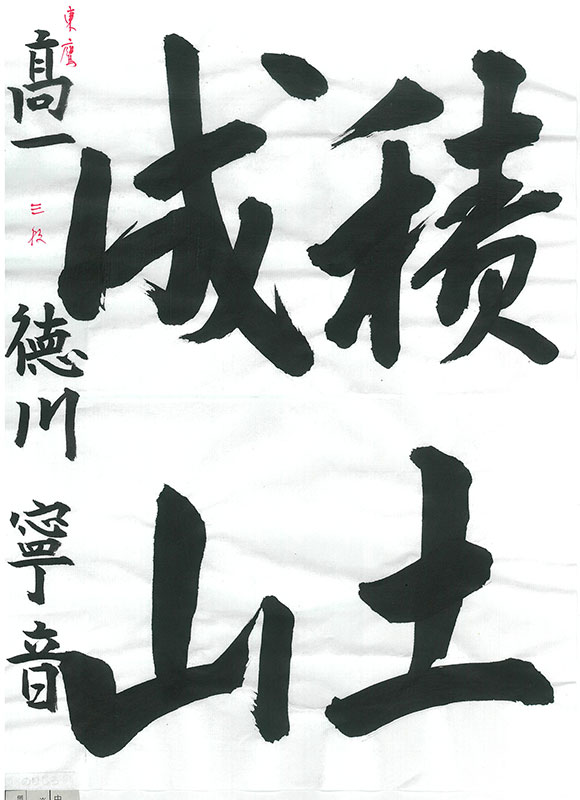 積土
成山
東鷹
高一 徳川 寧音
三段